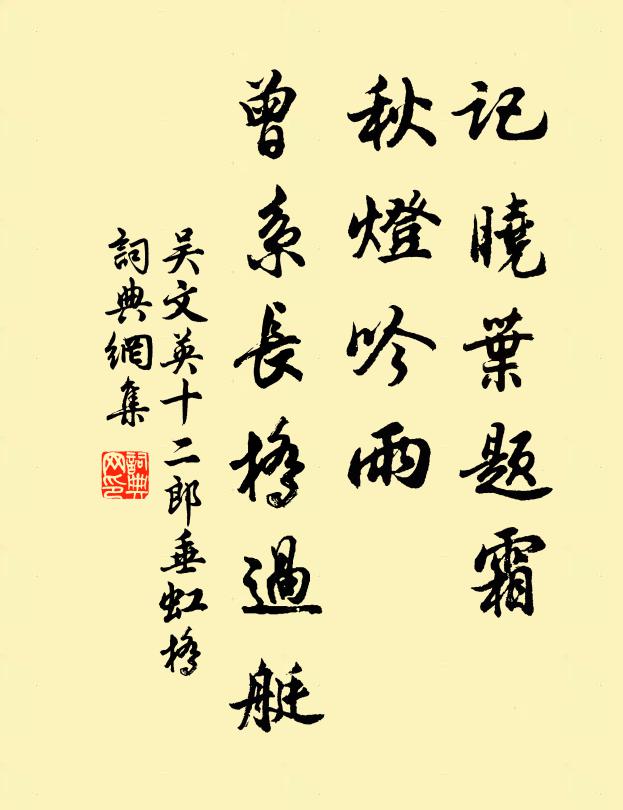 记曉葉題霜
秋燈吟雨
曾系長橋過艇
吴文英十二郎垂虹橋
詞典網集
詞典网印